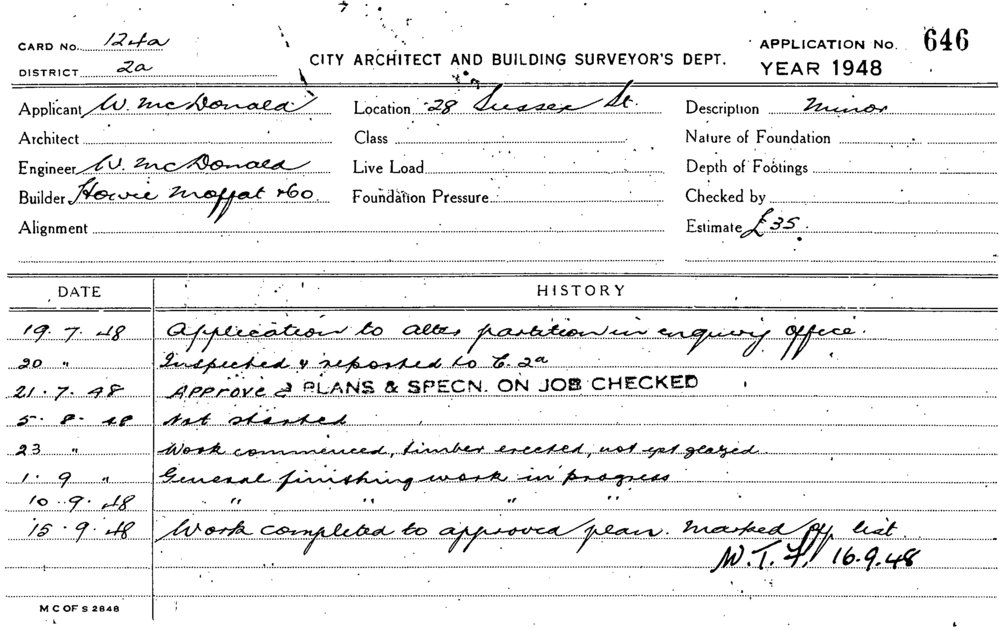 CARD No. 124a
DISTRICT 2a
CITY ARCHITECT AND BUILDING SURVEYOR'S DEPT.
APPLICATION No. 646
YEAR 1948
Applicant W. McDonald Location 28 Sussex St. Description Minor
Architect Class Nature of Foundation
Engineer W. McDonald Live Load Depth of Footings
Builder Howie Moffat & Co. Foundation Pressure Checked by
Alignment Estimate £35.
DATE HISTORY
19.7.48 Application to alter partition in enquiry office.
20 " Inspected & reported to C. 2a
21.7.48 Approved PLANS & SPECN. ON JOB CHECKED
5.8.48 Not started
23 " Work commenced, timber erected, not yet glazed.
1.9 " General finishing work in progress
10.9.48 " " " "
15.9.48 Work completed to approved plan. Marked off list
W.T.F. 16.9.48
M C OF S 2848